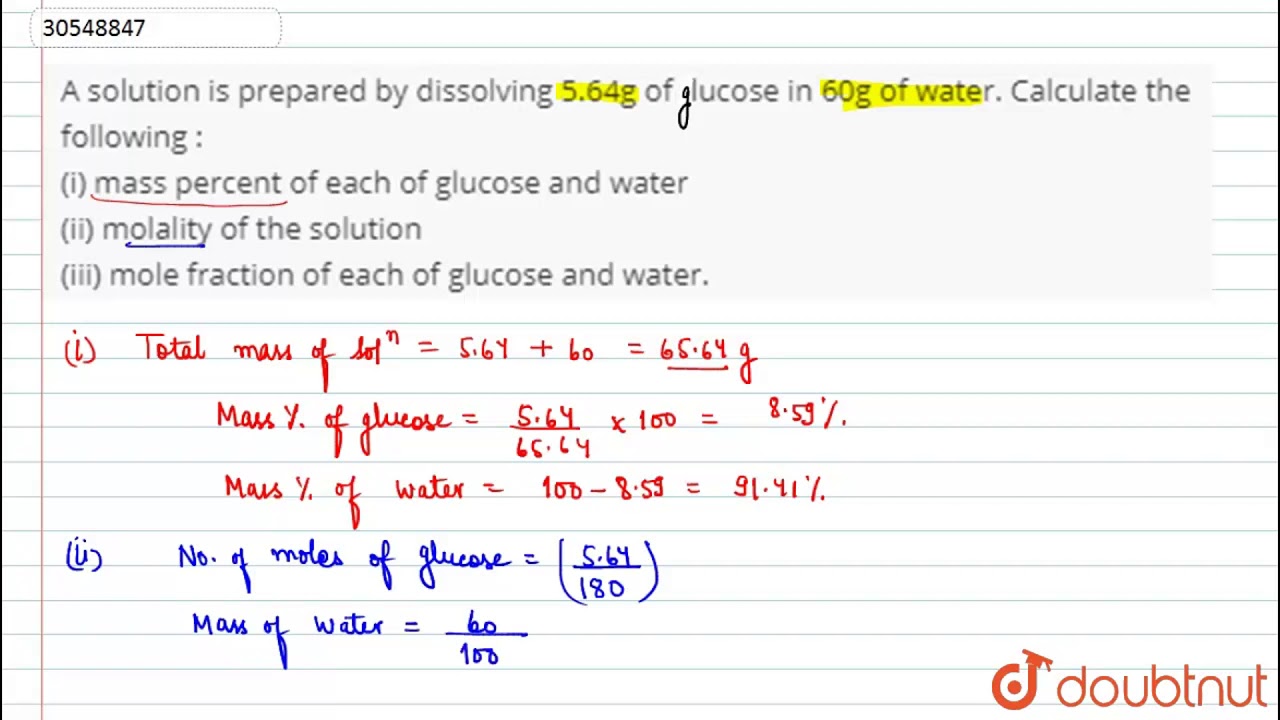 30548847
A solution is prepared by dissolving 5.64g of glucose in 60g of water. Calculate the
following :
(i) mass percent of each of glucose and water
(ii) molality of the solution
(iii) mole fraction of each of glucose and water.
(i) Total mass of solⁿ = 5.64 + 60 = 65.64 g
Mass %. of glucose = 5.64/65.64 x 100 = 8.59%.
Mass %. of water = 100 - 8.59 = 91.41%.
(ii) No. of moles of glucose = (5.64/180)
Mass of water = 60/100
doubtnut